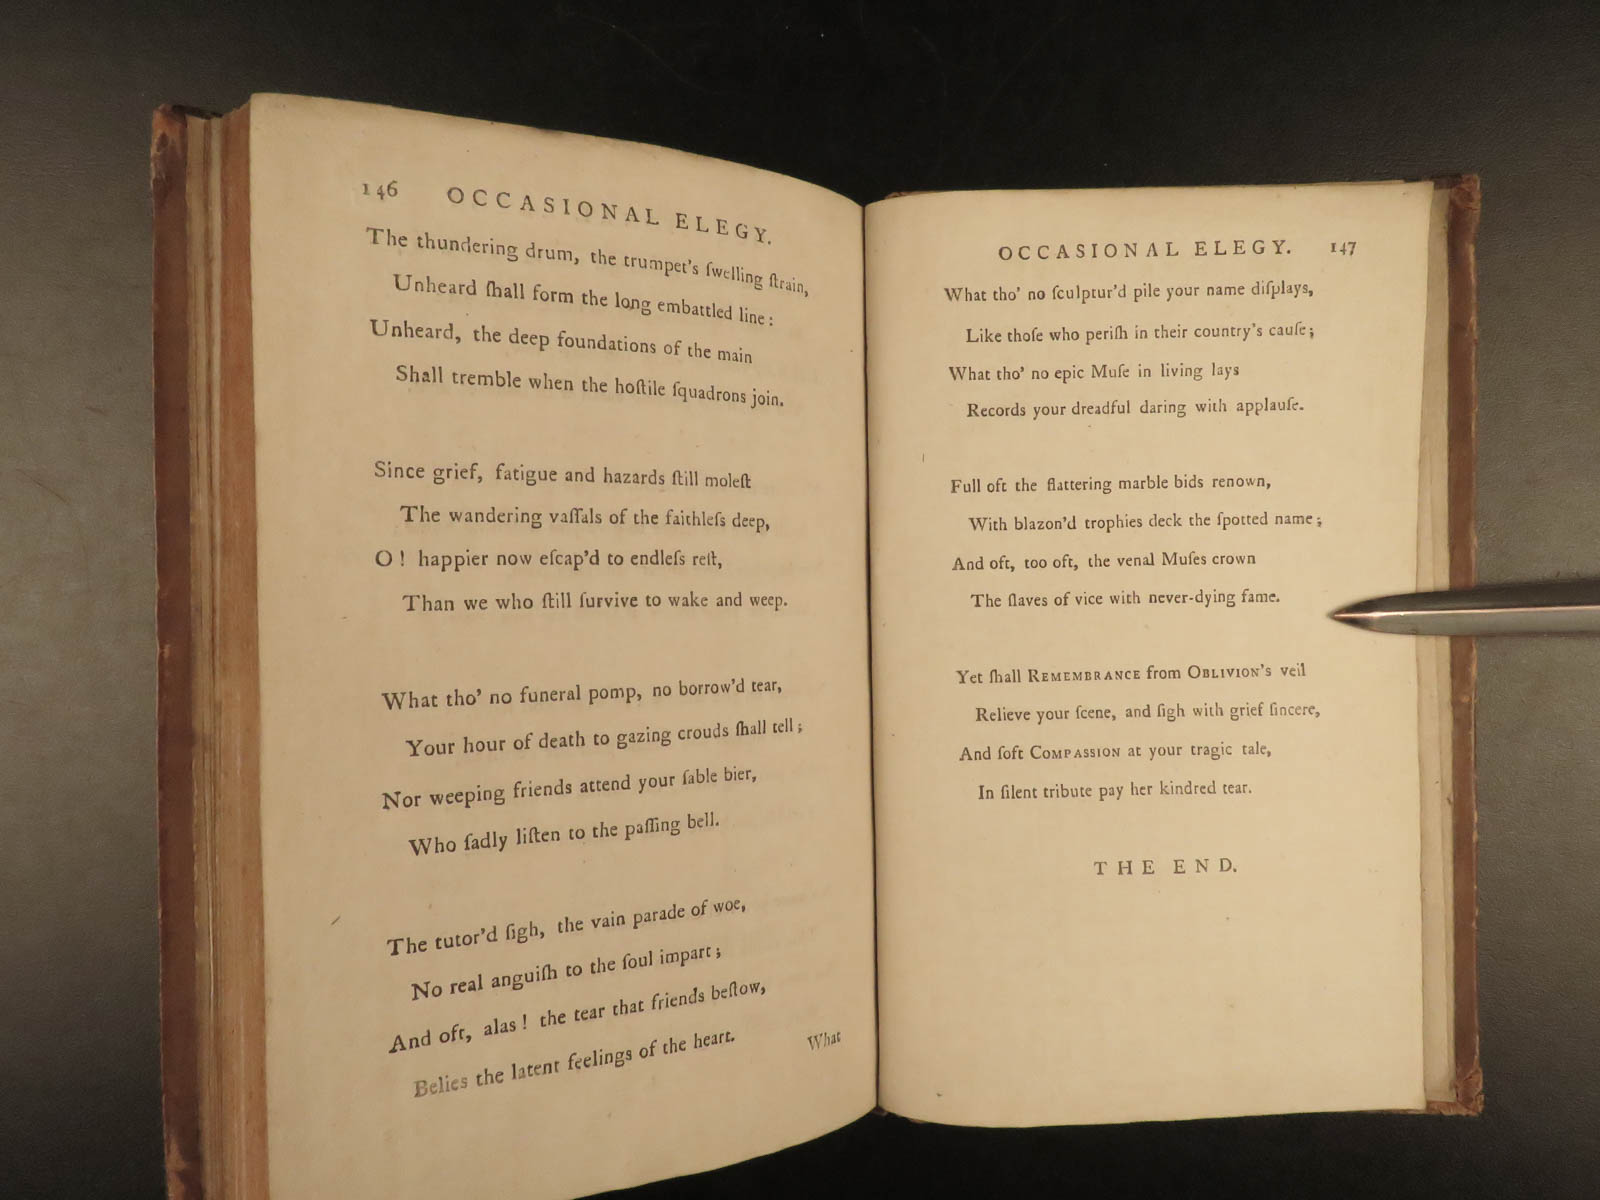 146 OCCASIONAL ELEGY.
The thundering drum, the trumpet's ſwelling ſtrain,
Unheard ſhall form the long embattled line:
Unheard, the deep foundations of the main
Shall tremble when the hoſtile ſquadrons join.
Since grief, fatigue and hazards ſtill moleſt
The wandering vaſſals of the faithleſs deep,
O! happier now eſcap'd to endleſs reſt,
Than we who ſtill ſurvive to wake and weep.
What tho' no funeral pomp, no borrow'd tear,
Your hour of death to gazing crouds ſhall tell;
Nor weeping friends attend your ſable bier,
Who ſadly liſten to the paſſing bell.
The tutor'd ſigh, the vain parade of woe,
No real anguiſh to the ſoul impart;
And oft, alas! the tear that friends beſtow,
Belies the latent feelings of the heart.
What
OCCASIONAL ELEGY. 147
What tho' no ſculptur'd pile your name diſplays,
Like thoſe who periſh in their country's cauſe;
What tho' no epic Muſe in living lays
Records your dreadful daring with applauſe.
Full oft the flattering marble bids renown,
With blazon'd trophies deck the ſpotted name;
And oft, too oft, the venal Muſes crown
The ſlaves of vice with never-dying fame.
Yet ſhall REMEMBRANCE from OBLIVION's veil
Relieve your ſcene, and ſigh with grief ſincere,
And ſoft COMPASSION at your tragic tale,
In ſilent tribute pay her kindred tear.
THE END.